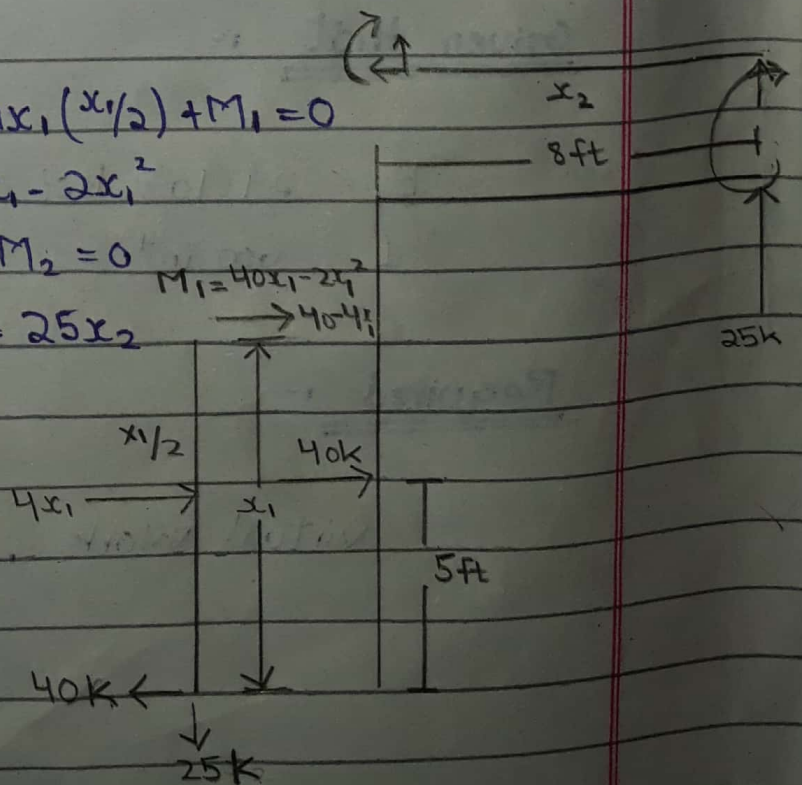 x₁(x₁/2) + M₁ = 0
- 2x₁²
M₂ = 0
= 25x₂
M₁ = 40x₁ - 2x₁²
x₂
8ft
25k
x₁/2
40k
4x₁
x₁
5ft
40K
25K